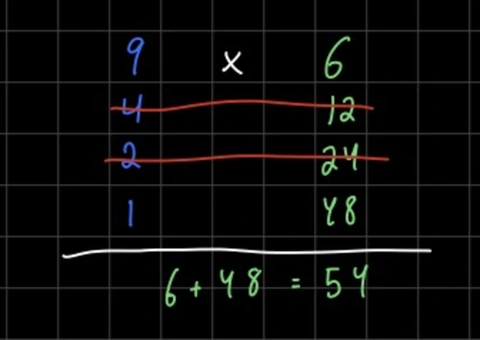 9 x 6
4 12
2 24
1 48
6 + 48 = 54